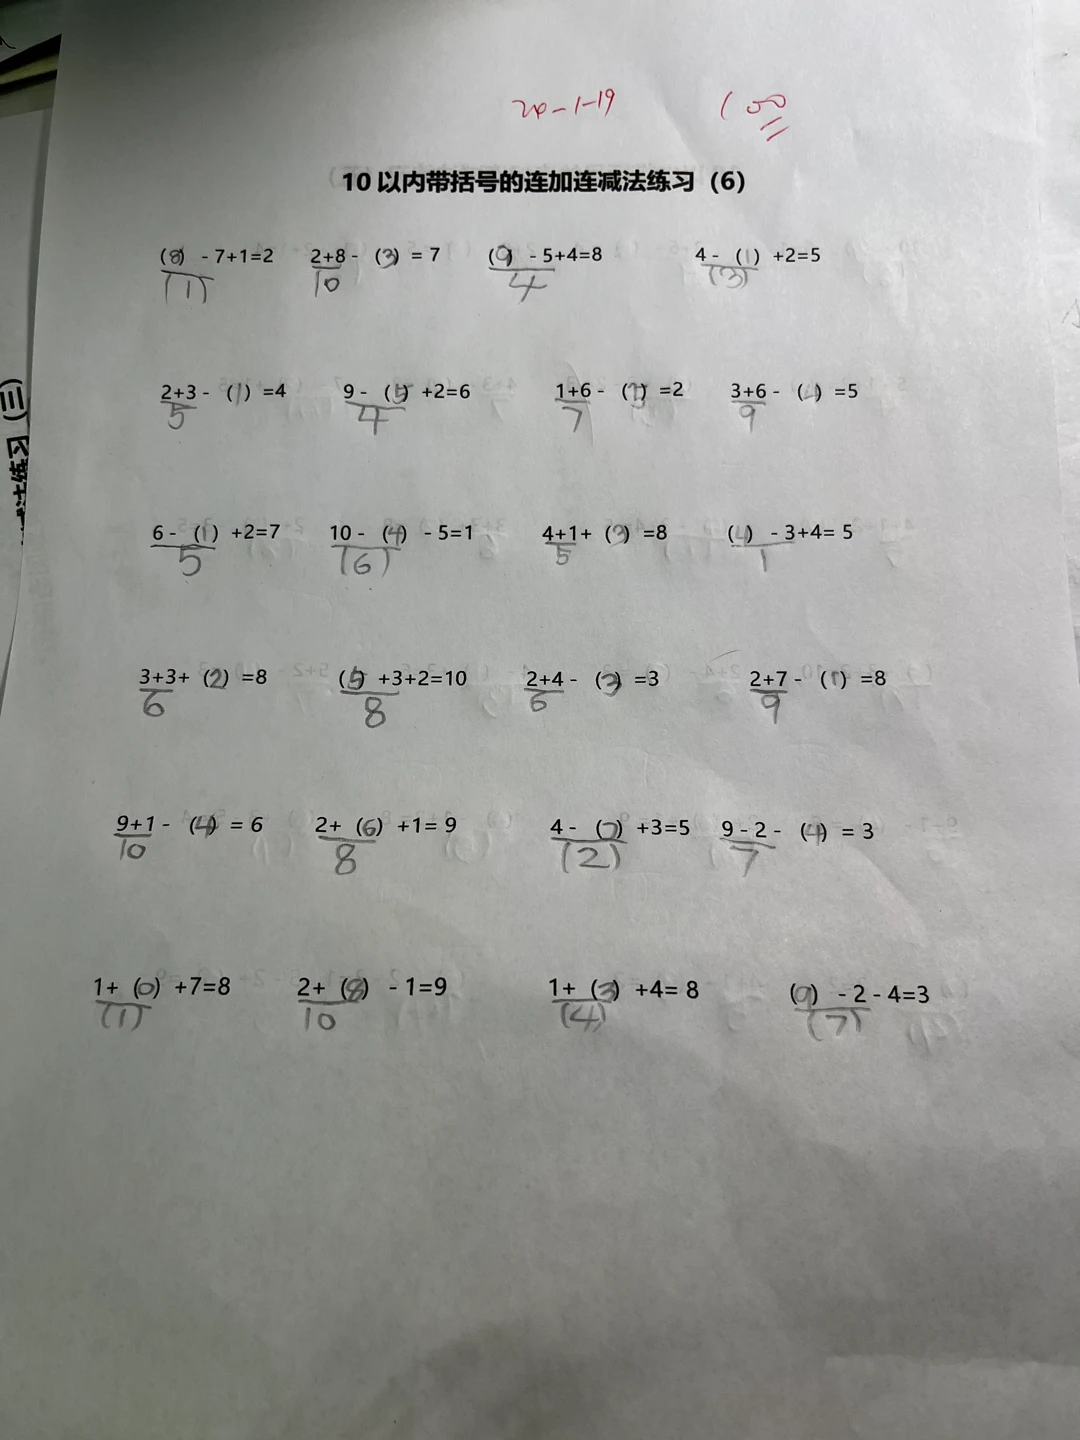 20-1-19 100
10以内带括号的连加连减法练习（6）
(8) - 7+1=2 2+8 - (3) = 7 (9) - 5+4=8 4 - (1) +2=5
(1) 10 4 (3)
2+3 - (1) =4 9 - (5) +2=6 1+6 - (5) =2 3+6 - (4) =5
5 4 7 9
6 - (1) +2=7 10 - (4) - 5=1 4+1+ (3) =8 (4) - 3+4= 5
5 (6) 5 1
3+3+ (2) =8 (5) +3+2=10 2+4 - (3) =3 2+7 - (1) =8
6 8 6 9
9+1 - (4) = 6 2+ (6) +1= 9 4 - (2) +3=5 9 - 2 - (4) = 3
10 8 (2) 7
1+ (0) +7=8 2+ (8) - 1=9 1+ (3) +4= 8 (9) - 2 - 4=3
(1) 10 (4) (7)
(三)